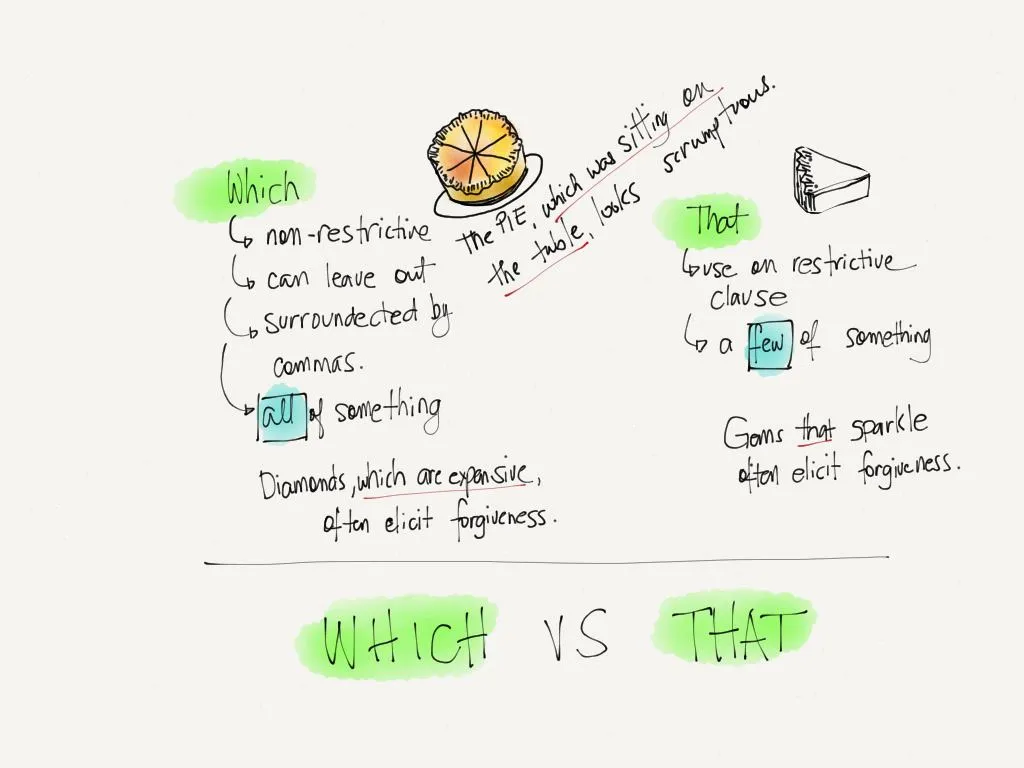 Which
non-restrictive
can leave out
surroundected by
commas.
all of something
Diamonds, which are expensive,
often elicit forgiveness.
the PIE, which was sitting on
the table, looks scrumptrous.
That
use on restrictive
clause
a few of something
Gems that sparkle
often elicit forgiveness.
WHICH VS THAT